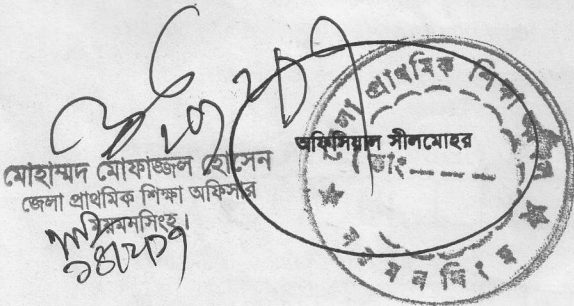 মোহাম্মদ মোফাজ্জল হোসেন
জেলা প্রাথমিক শিক্ষা অফিসার
ময়মনসিংহ।
অফিসিয়াল সীলমোহর
জেলা প্রাথমিক শিক্ষা
তাং-----
ময়মনসিংহ